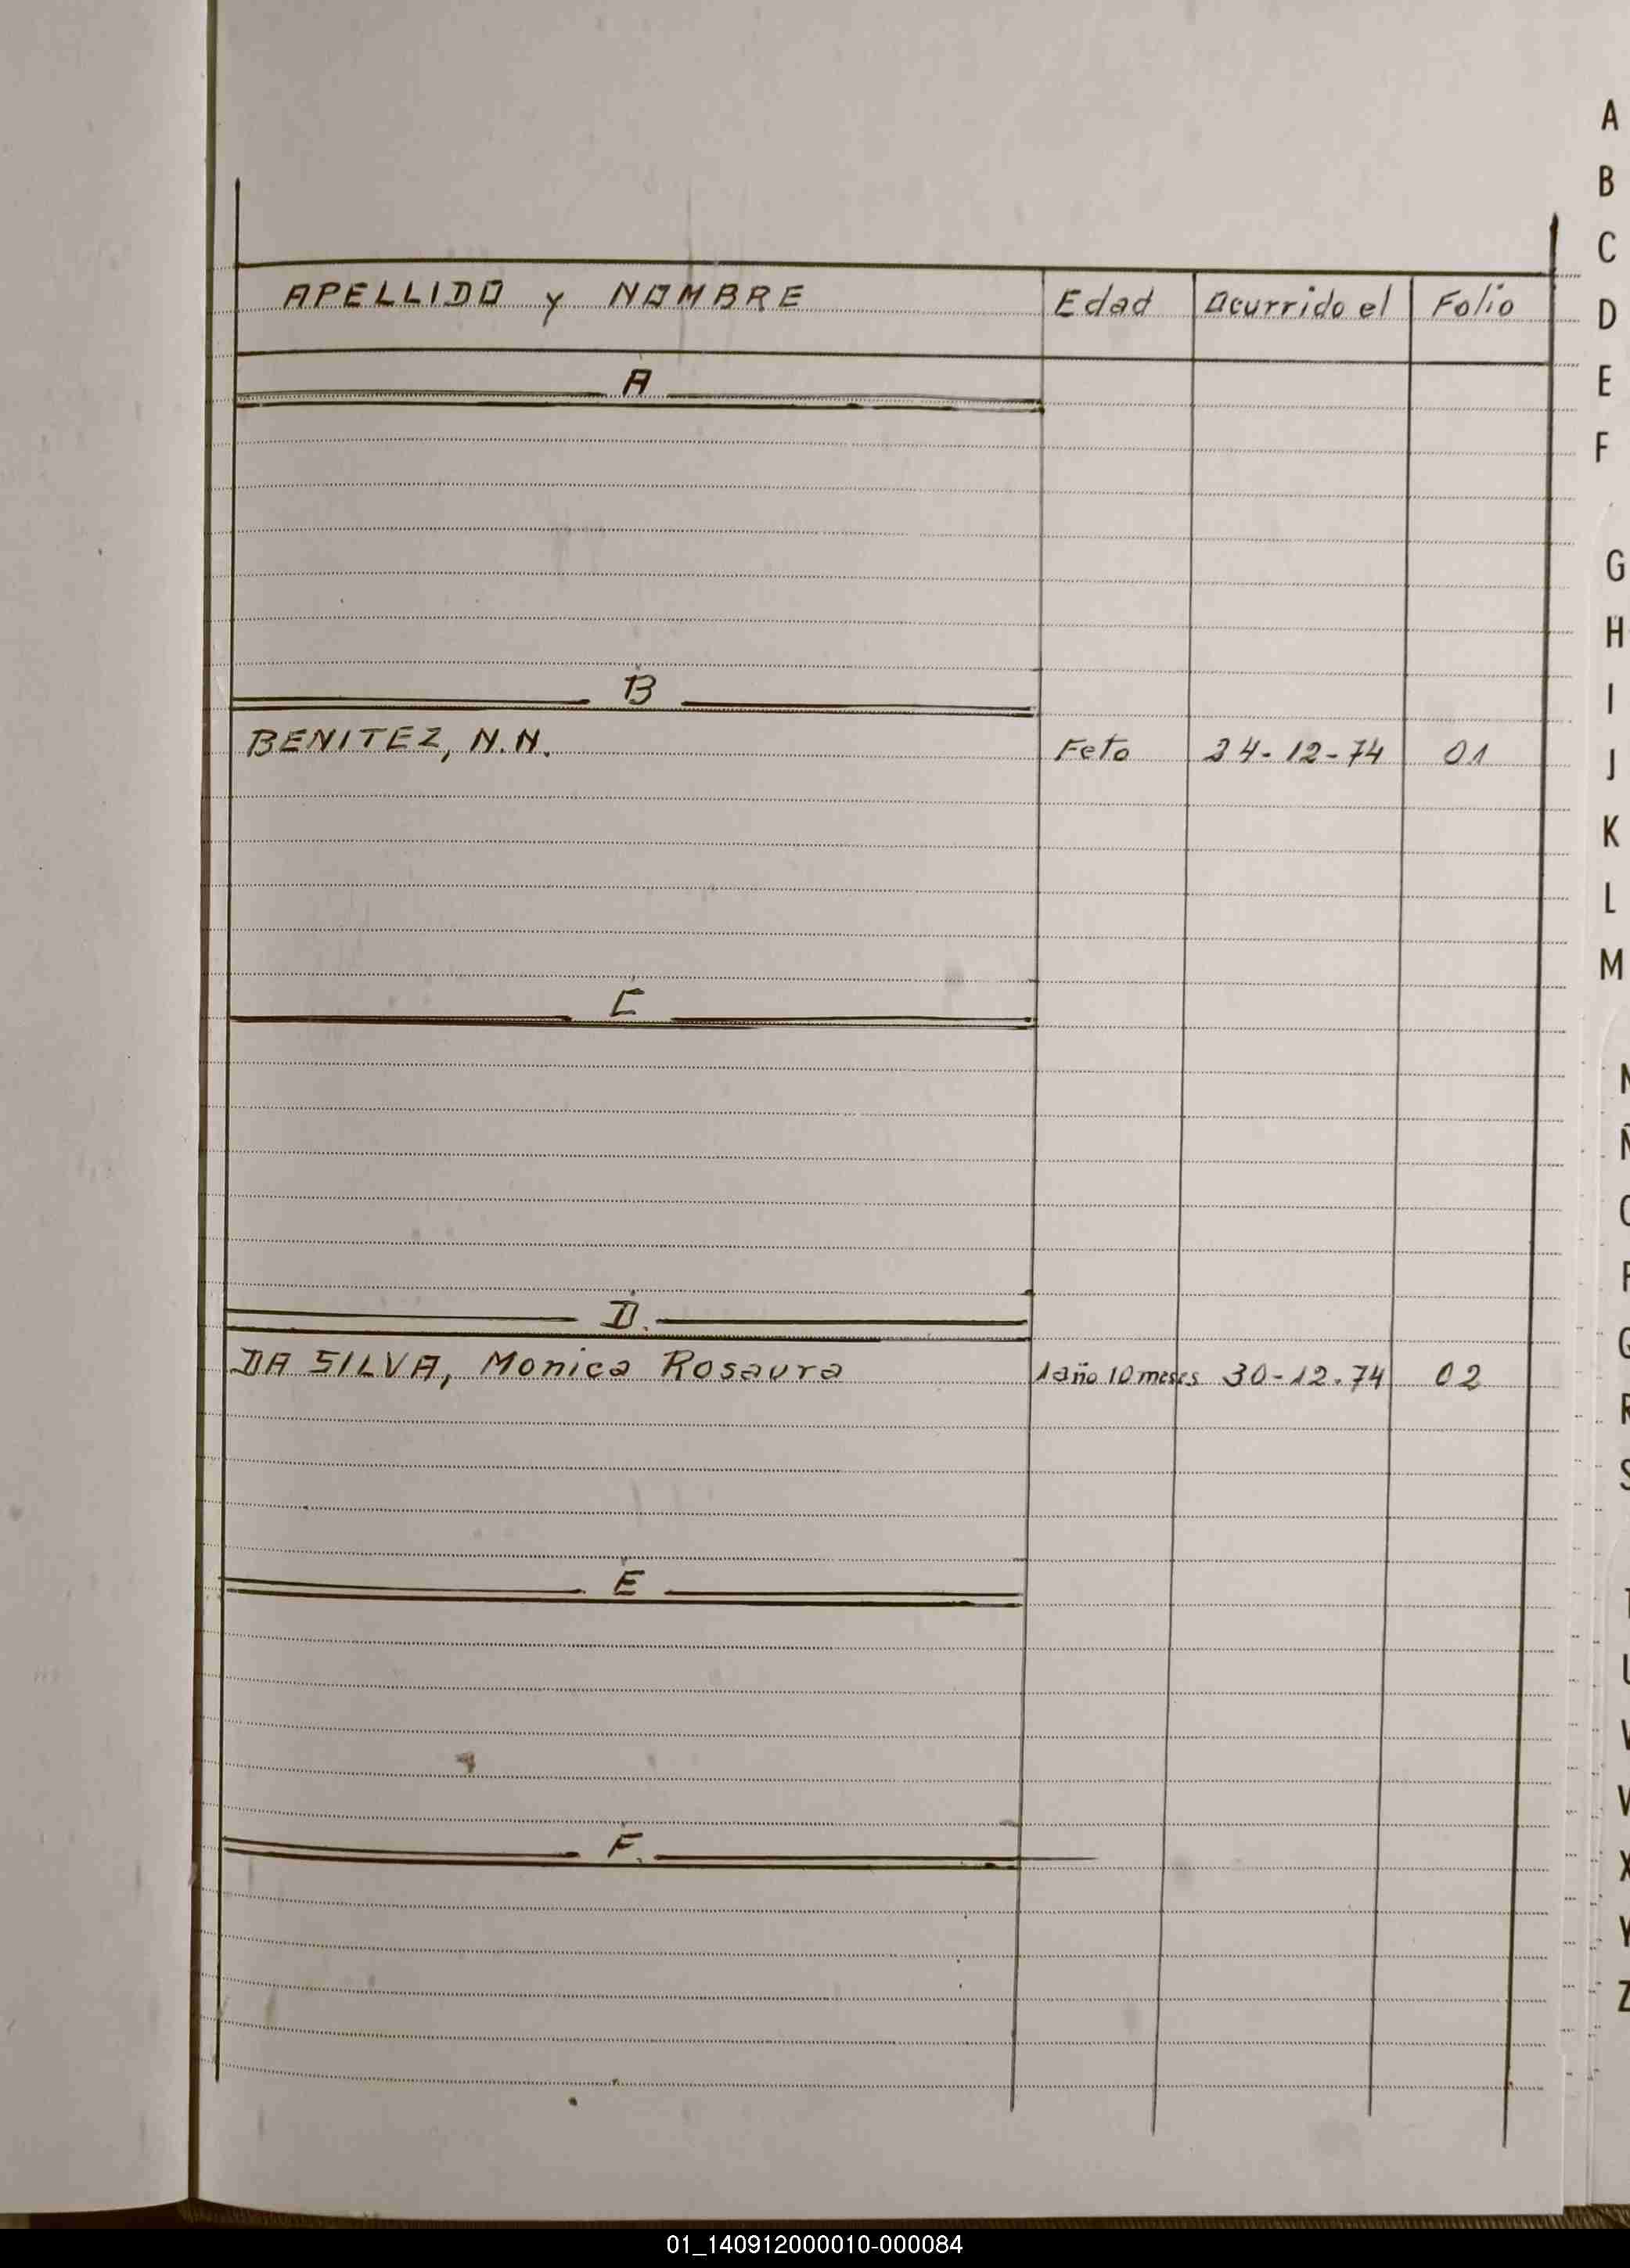 APELLIDO y NOMBRE Edad Ocurrido el Folio
A
B
BENITEZ, N.N. Feto 24-12-74 01
C
D.
DA SILVA, Monica Rosaura 1año 10 meses 30-12-74 02
E
F.
A
B
C
D
E
F
G
H
I
J
K
L
M
N
Ñ
O
P
Q
R
S
T
U
V
W
X
Y
Z
01_140912000010-000084